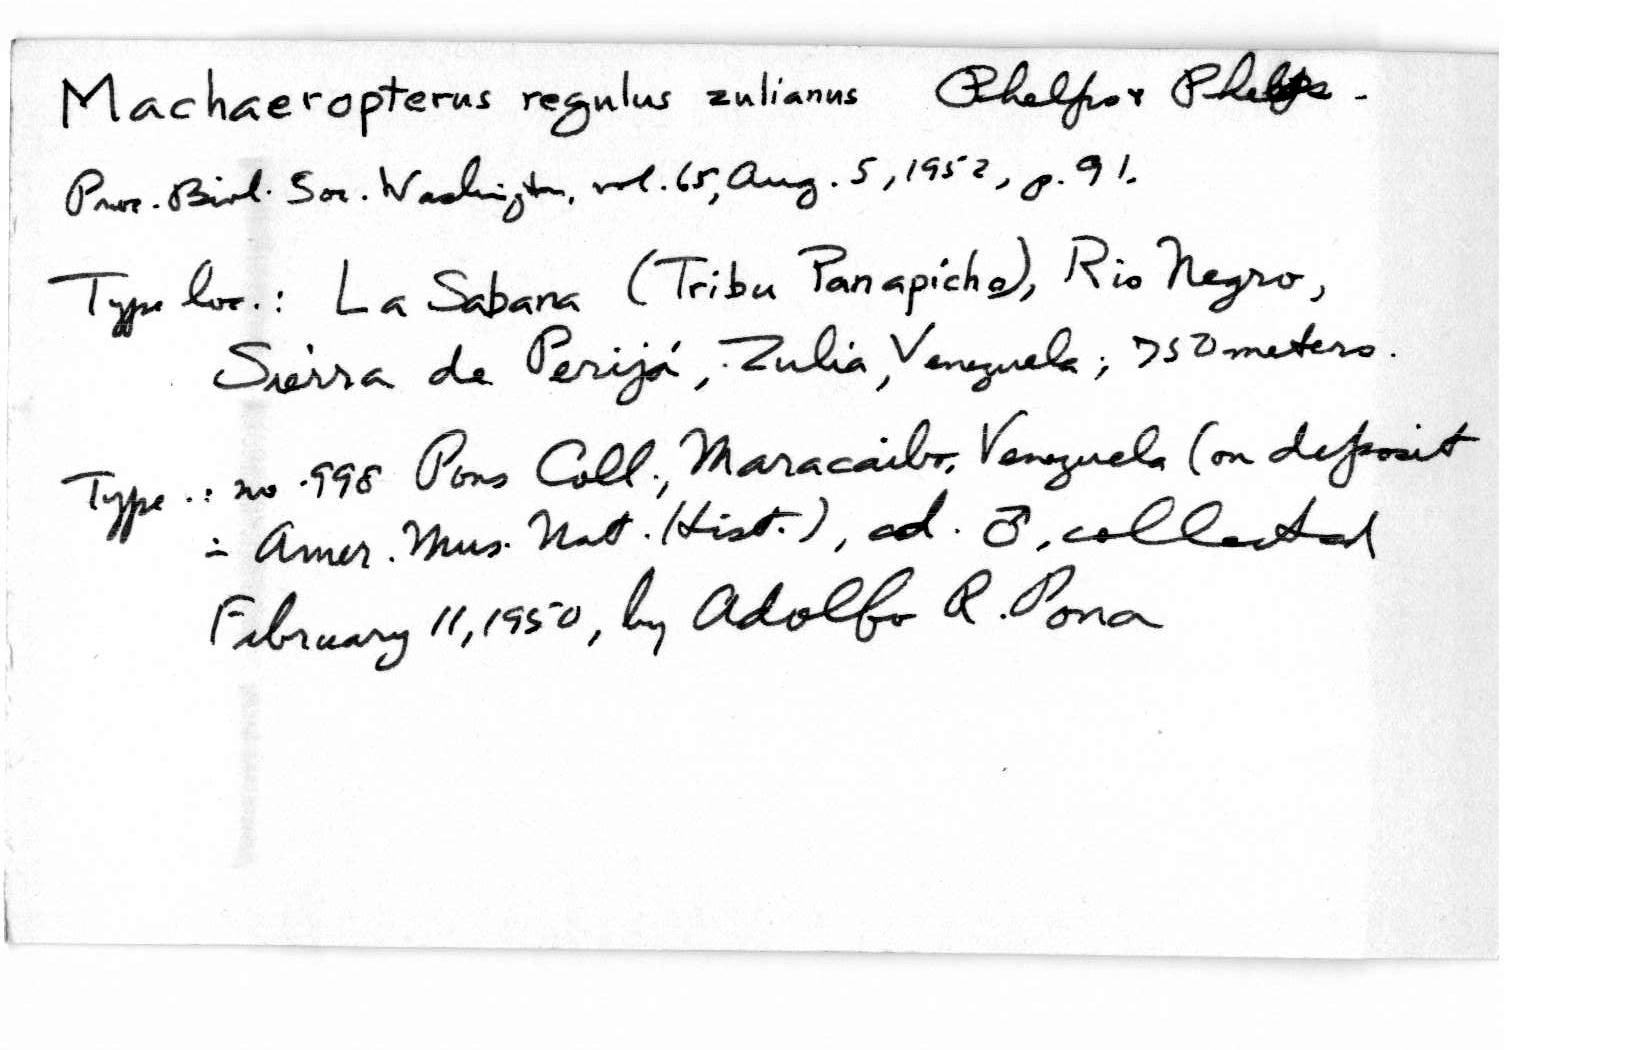 Machaeropterus regulus zulianus Phelps & Phelps.
Proc. Biol. Soc. Washington, vol. 65, Aug. 5, 1952, p. 91.
Type loc.: La Sabana (Tribu Panapicho), Rio Negro,
Sierra de Perijá, Zulia, Venezuela; 750 meters.
Type.: no. 998 Pons Coll., Maracaibo, Venezuela (on deposit
in Amer. Mus. Nat. Hist.), ad. ♂, collected
February 11, 1950, by Adolfo R. Pona